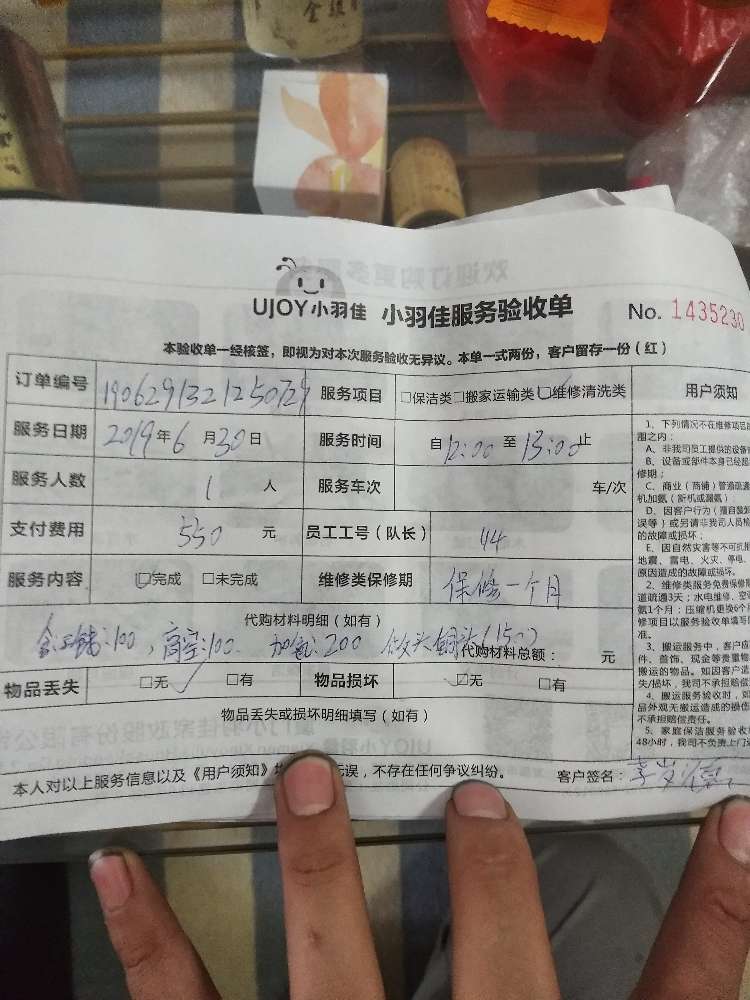 UJOY小羽佳 小羽佳服务验收单 No. 1435230
本验收单一经核签，即视为对本次服务验收无异议。本单一式两份，客户留存一份（红）
订单编号 1906291321250729 服务项目 □保洁类□搬家运输类☑维修清洗类 用户须知
服务日期 2019年6月30日 服务时间 自12:00至13:00止
服务人数 1 人 服务车次 车/次
支付费用 550 元 员工工号（队长） 44
服务内容 ☑完成 □未完成 维修类保修期 保修一个月
代购材料明细（如有）
:100，高空:100. 加氟:200 铜头(150)
代购材料总额： 元
物品丢失 □无 □有 物品损坏 ☑无 □有
物品丢失或损坏明细填写（如有）
本人对以上服务信息以及《用户须知》均 无误，不存在任何争议纠纷。 客户签名：李
1、下列情况不在维修项目
围之内：
A、非我司员工提供的设备
B、设备或部件本身已经
修期；
C、商业（商铺）管道疏通
机加氨（新机或漏氨）
D、因客户行为（擅自
误等）或另请非我司人员
的故障或损坏；
E、因自然灾害等不可抗
地震、雷电、火灾、停电、
原因造成的故障或损坏。
2、维修类服务免费保修
道疏通3天；水电维修、空
氨1个月；压缩机更换6个
修项目以服务验收单填写
准。
3、搬运服务中，客户应
件、首饰、现金等贵重
搬运的物品。如因客户
失/损坏，我司不承担赔偿
4、搬运服务验收时，如
品外观无搬运造成的损
不承担赔偿责任。
5、家庭保洁服务验收
48小时，我司不负责上门